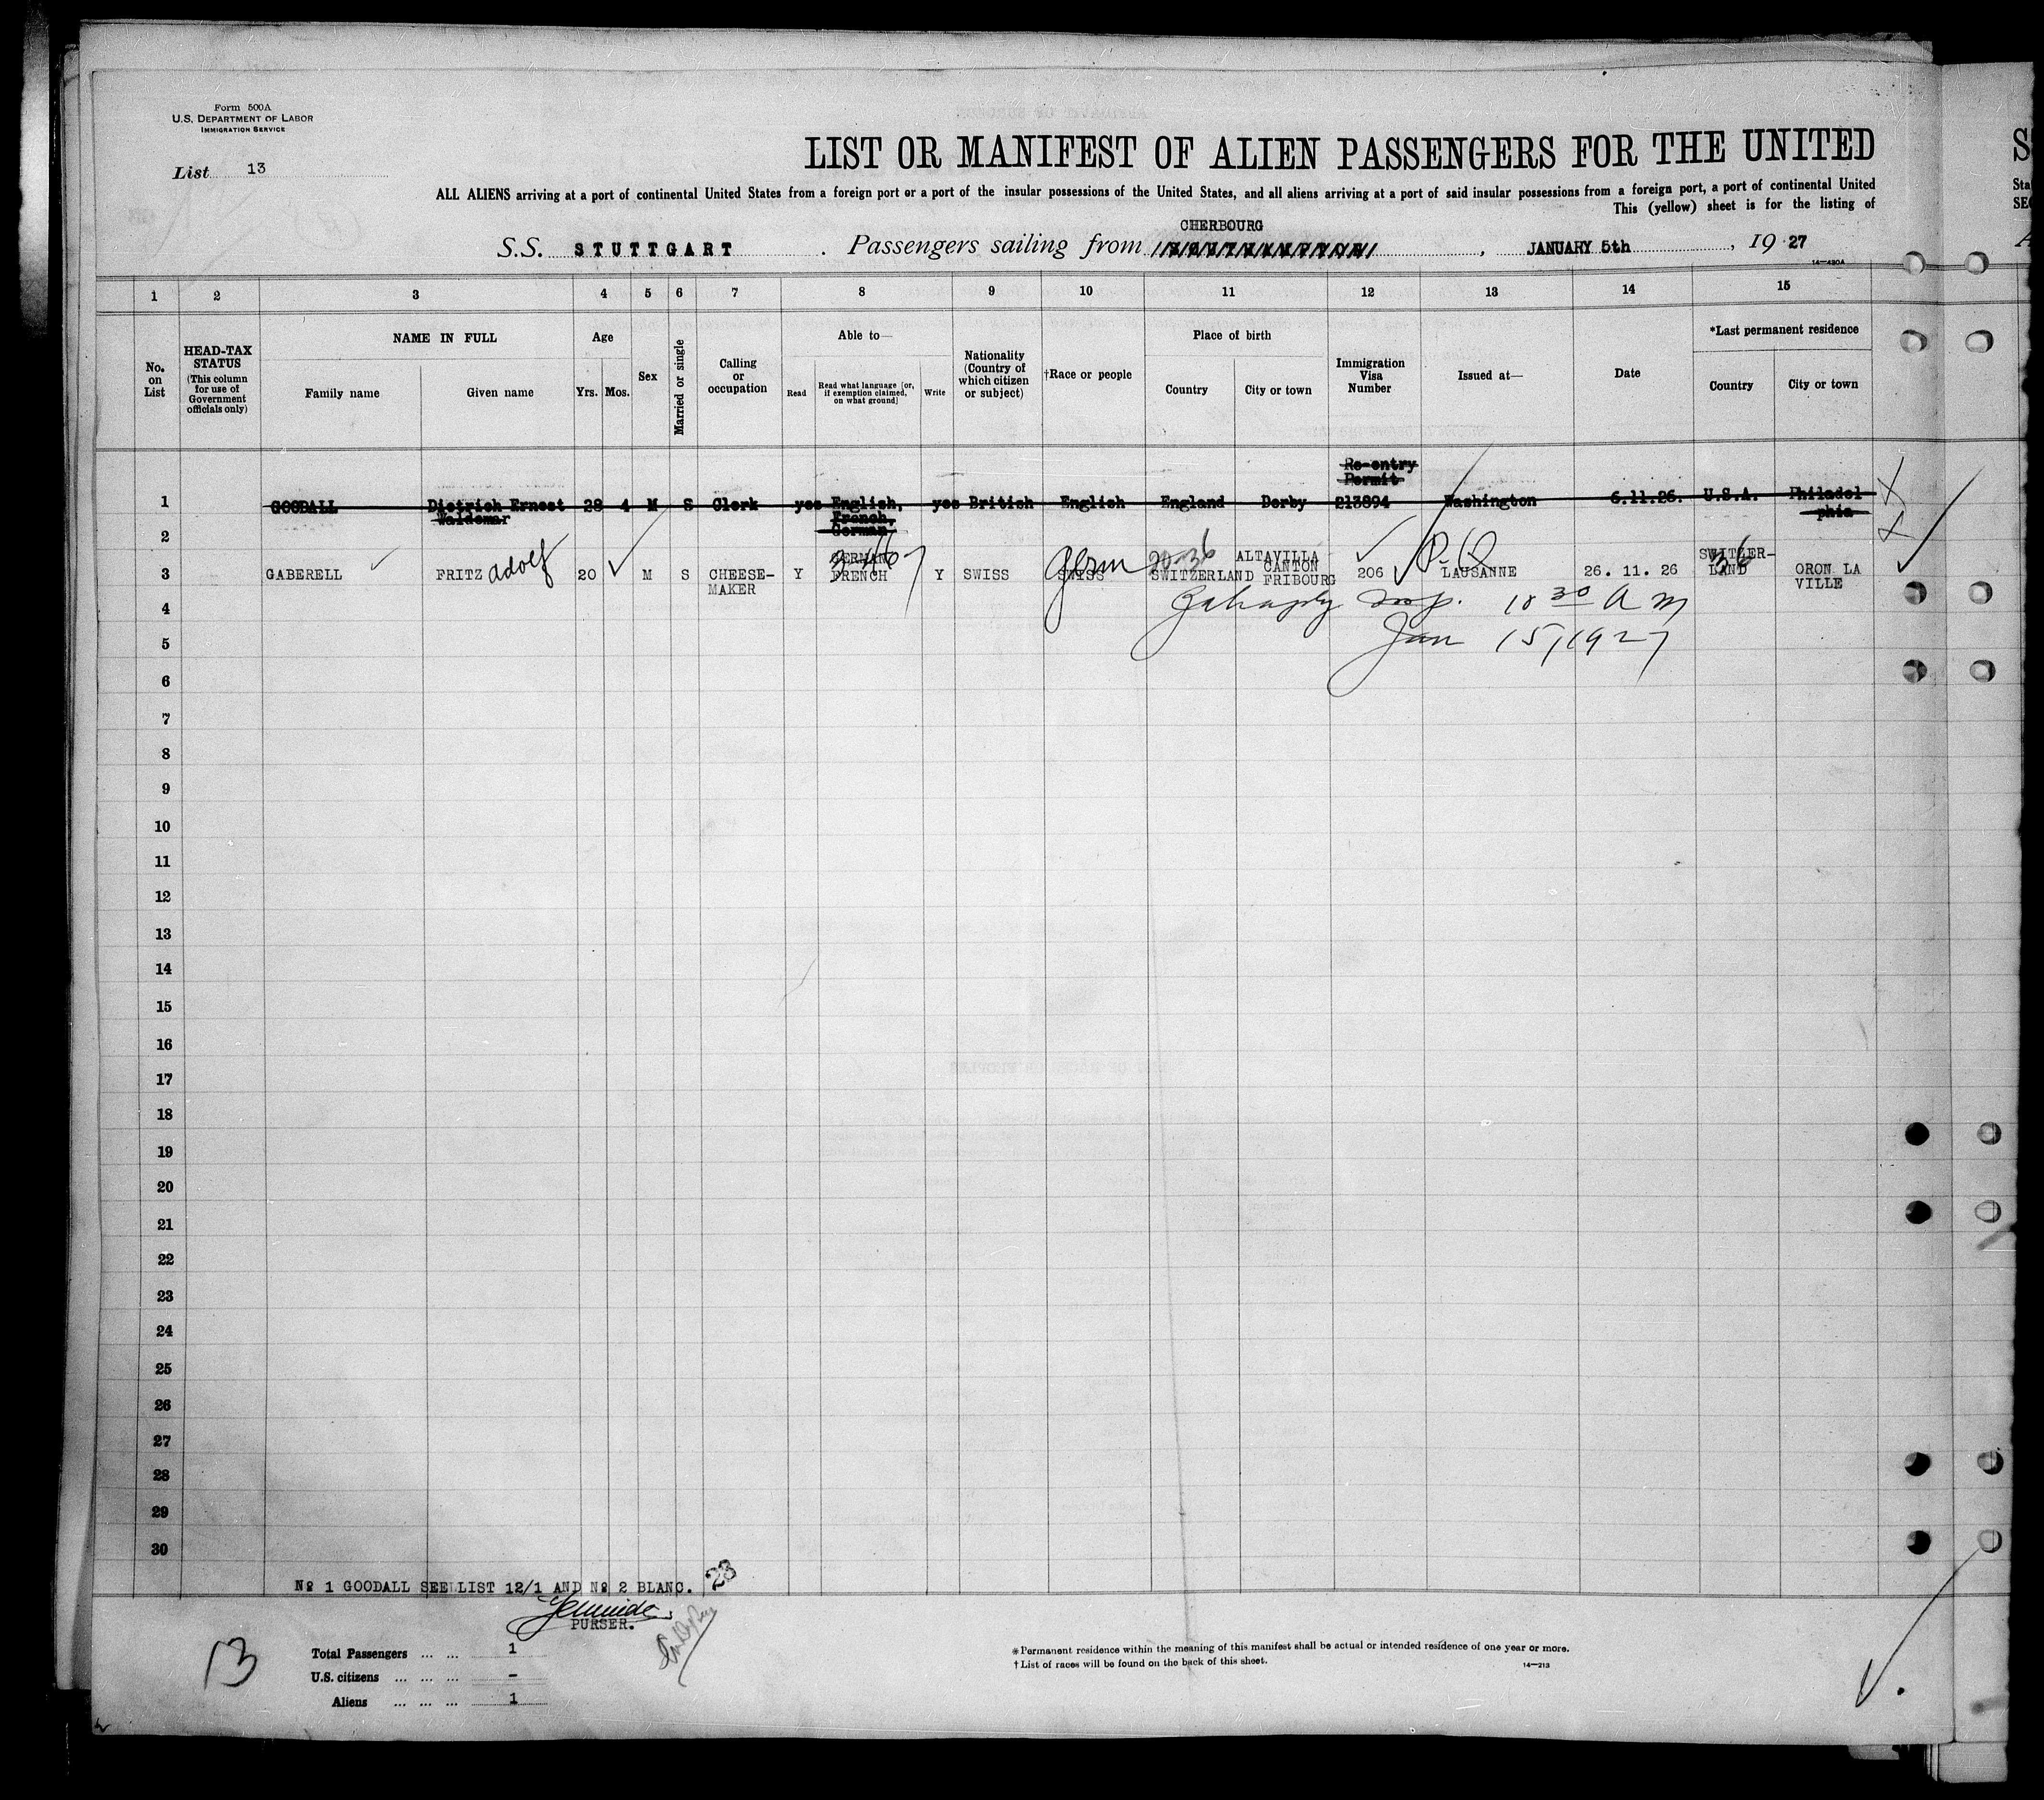 Form 500A
U.S. DEPARTMENT OF LABOR
IMMIGRATION SERVICE
List 13
LIST OR MANIFEST OF ALIEN PASSENGERS FOR THE UNITED
ALL ALIENS arriving at a port of continental United States from a foreign port or a port of the insular possessions of the United States, and all aliens arriving at a port of said insular possessions from a foreign port, a port of continental United
This (yellow) sheet is for the listing of
CHERBOURG
S.S. STUTTGART . Passengers sailing from , JANUARY 5th , 19 27
14—430A
1 2 3 4 5 6 7 8 9 10 11 12 13 14 15
No. on List
HEAD-TAX STATUS (This column for use of Government officials only)
NAME IN FULL
Family name Given name
Age
Yrs. Mos.
Sex
Married or single
Calling or occupation
Able to—
Read Read what language [or, if exemption claimed, on what ground] Write
Nationality (Country of which citizen or subject)
†Race or people
Place of birth
Country City or town
Immigration Visa Number
Issued at—
Date
*Last permanent residence
Country City or town
Re-entry
Permit
1 GOODALL Dietrich Ernest 28 4 M S Clerk yes English, yes British English England Derby 213894 Washington 6.11.26. U.S.A. Philadel
Waldemar French, phia
German
2
GERMAN ALTAVILLA SWITZER-
3 GABERELL FRITZ Adolf 20 M S CHEESE- Y FRENCH Y SWISS SWISS Germ SWITZERLAND CANTON 206 LAUSANNE 26. 11. 26 LAND ORON LA
MAKER 20-36 FRIBOURG 36 VILLE
4 10 30 A M
5 Jan 15, 1927
6
7
8
9
10
11
12
13
14
15
16
17
18
19
20
21
22
23
24
25
26
27
28
29
30
No 1 GOODALL SEE LIST 12/1 AND No 2 BLANC. 23
PURSER.
13
Total Passengers ... ... 1
U.S. citizens ... ... ... –
Aliens ... ... ... 1
*Permanent residence within the meaning of this manifest shall be actual or intended residence of one year or more.
†List of races will be found on the back of this sheet.
14—213